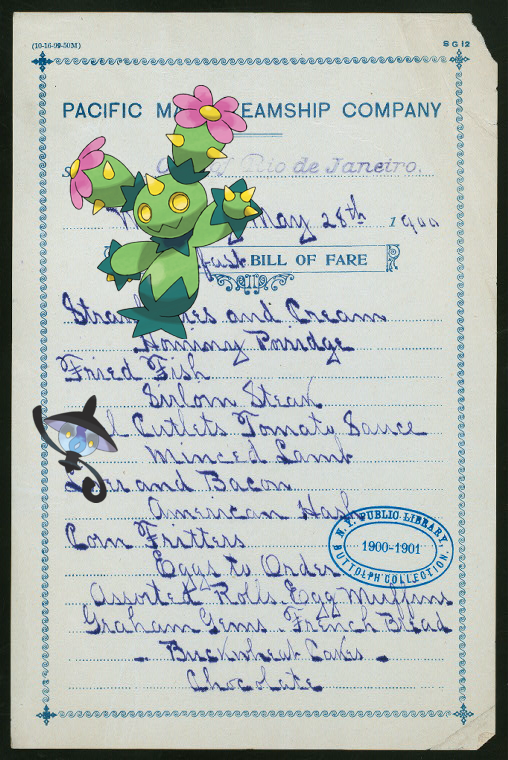 (10-16-99-50M)
S G 12
PACIFIC MA EAMSHIP COMPANY
S Rio de Janeiro.
May 28th 1900
fast BILL OF FARE
Straw ies and Cream
Hominy Porridge
Fried Fish
Sirloin Steak
l Cutlets Tomato Sauce
Minced Lamb
and Bacon
American Hash
Corn Fritters
Eggs to Order
Assorted Rolls Egg Muffins
Graham Gems French Bread
- Buckwheat Cakes -
Chocolate
N.Y. PUBLIC LIBRARY,
1900-1901
BUTTOLPH COLLECTION.